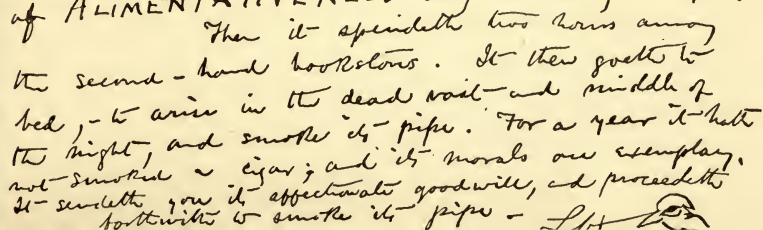 of ALIMENTATIVENESS
Then it spendeth two hours among
the second-hand bookstores. It then goeth to
bed, - to arise in the dead vast and middle of
the night, and smoke its pipe. For a year it hath
not smoked a cigar; and its morals are exemplary.
It sendeth you its affectionate goodwill, and proceedeth
forthwith to smoke its pipe -